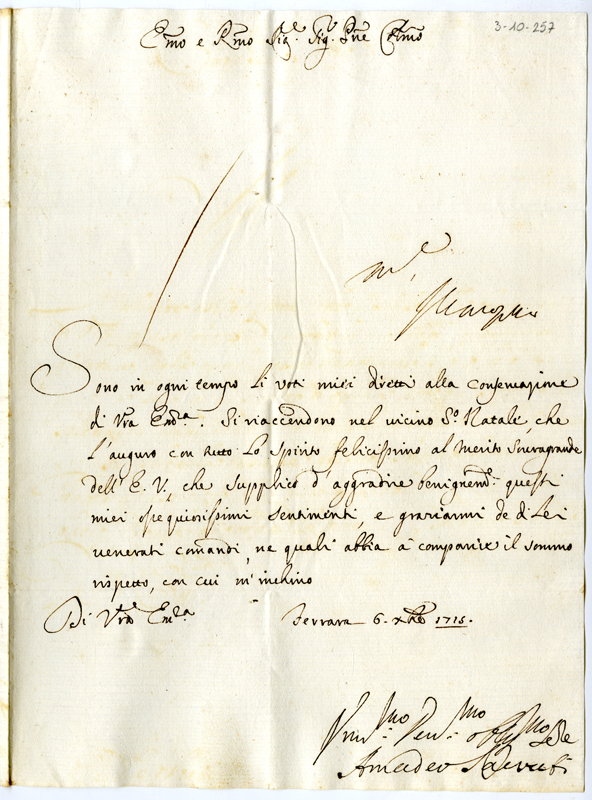 3-10-257
Emo e Rmo Sig.r Sig.r Pne Colmo
Sono in ogni tempo li voti miei diretti alla conservazione
di Vra Emza. Si riaccendono nel vicino So. Natale, che
l'auguro con tutto lo spirito felicissimo al merito sovragrande
dell'E. V., che supplico d'aggradire benignemte. questi
miei ossequiosissimi sentimenti, e graziarmi de di Lei
venerati comandi, ne quali abbia à comparire il sommo
rispetto, con cui m'inchino
Di Vra Emza Ferrara 6. xbre 1715.
Amadeo